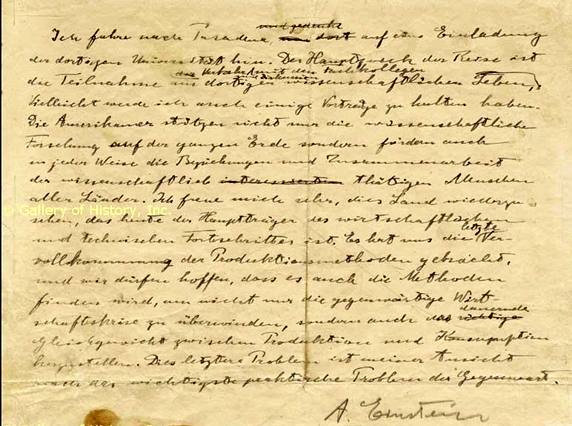 und gedenke
Ich fahre nach Pasadena, dort auf eine Einladung
der dortigen Universität hin. Der Hauptzweck der Reise ist
der Verkehr mit den Fachkollegen
die Teilnahme am dortigen wissenschaftlichen Leben,
Vielleicht werde ich auch einige Vorträge zu halten haben.
Die Amerikaner stützen nicht nur die wissenschaftliche
Forschung auf der ganzen Erde sondern fördern auch
in jeder Weise die Beziehungen und Zusammenarbeit
der wissenschaftlich interessierten thätigen Menschen
aller Länder. Ich freue mich sehr, dies Land wiederzu-
© Gallery of History, Inc.
sehen, das heute der Hauptträger des wirtschaftlichen
letzte
und technischen Fortschrittes ist. Es hat uns die Ver-
vollkommnung der Produktionsmethoden gebracht,
und wir dürfen hoffen, dass es auch die Methoden
finden wird, um nicht nur die gegenwärtige Wirt-
dauernde
schaftskrise zu überwinden, sondern auch das richtige
Gleichgewicht zwischen Produktion und Konsumption
herzustellen. Dies letztere Problem ist meiner Ansicht
nach das wichtigste praktische Problem der Gegenwart.
A. Einstein